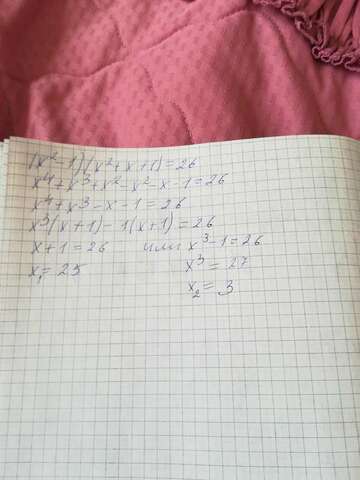 (x²-1)(x²+x+1)=26
x⁴+x³+x²-x²-x-1=26
x⁴+x³-x-1=26
x³(x+1)-1(x+1)=26
x+1=26 или x³-1=26
x₁=25 x³=27
x₂=3